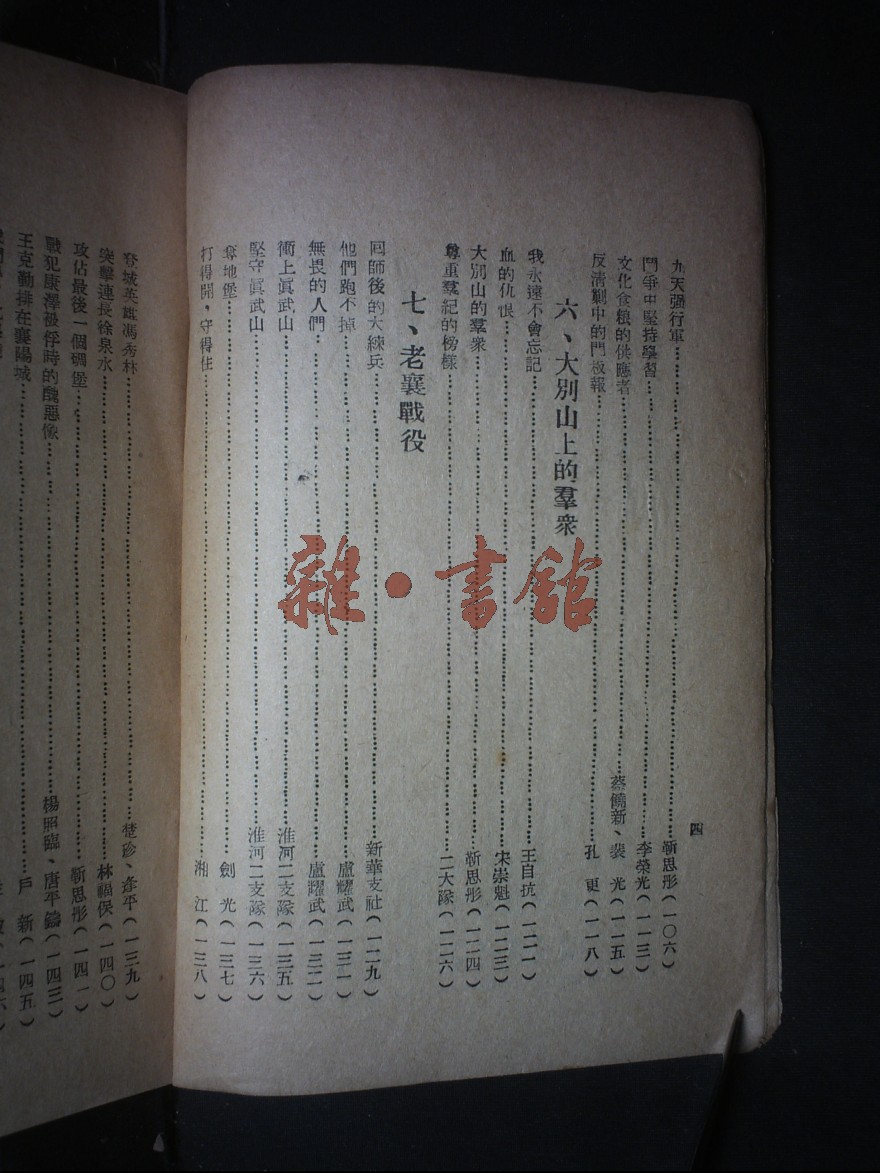 四
九天强行軍 靳思彤(一〇六)
鬥爭中堅持學習 李榮光(一一三)
文化食粮的供應者 蔡僑新、裴 光(一一五)
反清剿中的門板報 孔 更(一一八)
六、大別山上的羣衆
我永遠不會忘記 王自抗(一二一)
血的仇恨 宋崇魁(一二三)
大別山的羣衆 靳思彤(一二四)
尊重羣紀的榜樣 二大隊(一二六)
七、老襄戰役
囘師後的大練兵 新華支社(一二九)
他們跑不掉 盧耀武(一三一)
無畏的人們 盧耀武(一三二)
衝上眞武山 淮河二支隊(一三五)
堅守眞武山 淮河二支隊(一三六)
奪地堡 劍 光(一三七)
打得開、守得住 湘 江(一三八)
奪城英雄馮秀林 楚珍、逢平(一三九)
突擊連長徐泉水 林福保(一四〇)
攻佔最後一個碉堡 靳思彤(一四一)
戰犯康澤被俘時的醜惡像 楊照臨、唐平鑄(一四三)
王克勤排在襄陽城 戶 新(一四五)
雜·書館